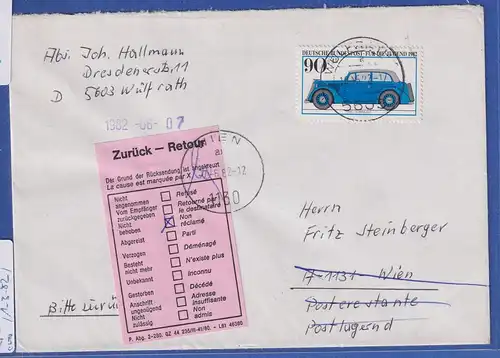 Abs. Joh. Hallmann
Dresdenerstr. 11
D 5603 Wülfrath
DEUTSCHE BUNDESPOST · FÜR DIE JUGEND 1982
90
1982 -06- 07
WIEN
1180
Zurück – Retour
Der Grund der Rücksendung ist angekreuzt
La cause est marquée par X
Nicht angenommen Refusé
Vom Empfänger zurückgegeben Retourné par le destinataire
Nicht behoben X Non réclamé
Abgereist Parti
Verzogen Déménagé
Besteht nicht mehr N'existe plus
Unbekannt Inconnu
Gestorben Décédé
Anschrift ungenügend Adresse insuffisante
Nicht zulässig Non admis
Bitte zurück
Herrn
Fritz Steinberger
A-1131 Wien
Posterestante
Postlagernd